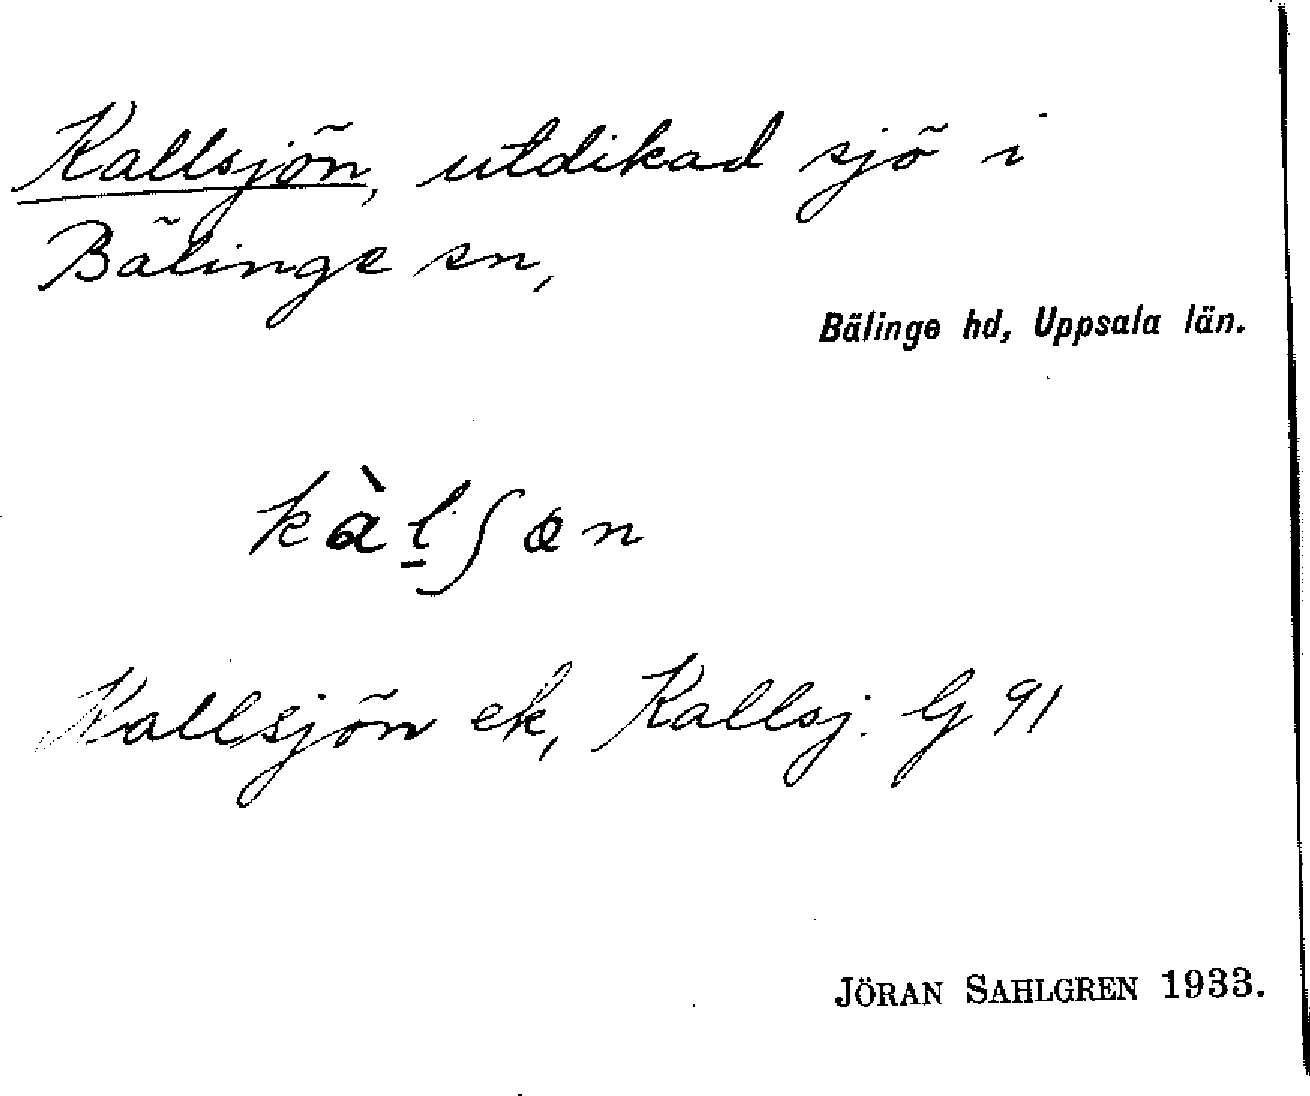 Kallsjön, utdikad sjö i
Bälinge sn,
Bälinge hd, Uppsala län.
kàl̠ʃøn
Kallsjön ek, Kallsj. G 91
JÖRAN SAHLGREN 1933.